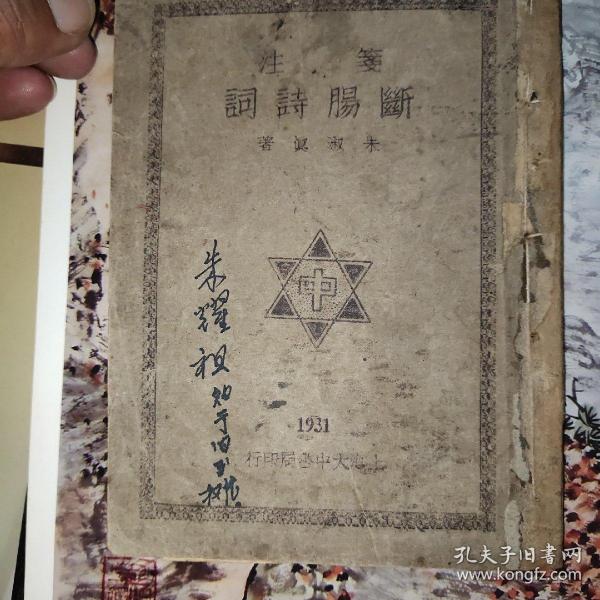 箋注
斷腸詩詞
朱淑真著
中
1931
上海大中書局印行
朱耀祖
孔夫子旧书网
www.kongfz.com